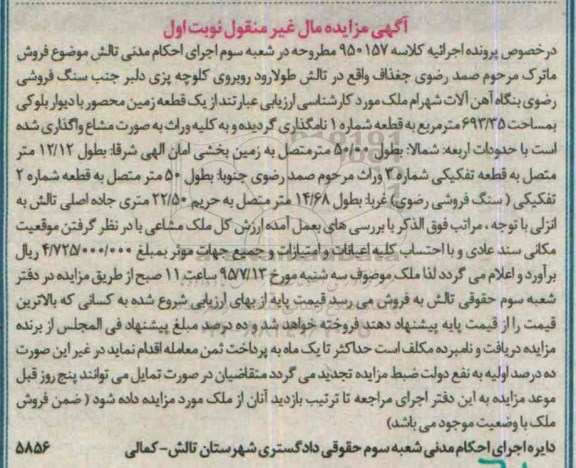 آگهی مزایده مال غیر منقول نوبت اول
درخصوص پرونده اجرائیه کلاسه ۹۵۰۱۵۷ مطروحه در شعبه سوم اجرای احکام مدنی تالش موضوع فروش
ماترک مرحوم صمد رضوی جغذاف واقع در تالش طولارود روبروی کلوچه پزی دلبر جنب سنگ فروشی
رضوی بنگاه آهن آلات شهرام ملک مورد کارشناسی ارزیابی عبارتند از یک قطعه زمین محصور با دیوار بلوکی
بمساحت ۶۹۳/۳۵ مترمربع به قطعه شماره ۱ نامگذاری گردیده و به کلیه وراث به صورت مشاع واگذاری شده
است با حدودات اربعه: شمالا: بطول ۵۰/۰۰ مترمتصل به زمین بخشی امان الهی شرقا: بطول ۱۲/۱۲ متر
متصل به قطعه تفکیکی شماره ۳ وراث مرحوم صمد رضوی جنوبا: بطول ۵۰ متر متصل به قطعه شماره ۲
تفکیکی ( سنگ فروشی رضوی) غربا: بطول ۱۴/۶۸ متر متصل به حریم ۲۲/۵۰ متری جاده اصلی تالش به
انزلی با توجه ، مراتب فوق الذکر با بررسی های بعمل آمده ارزش کل ملک مشاعی با در نظر گرفتن موقعیت
مکانی سند عادی و با احتساب کلیه اعیانات و امتیازات و جمیع جهات موثر بمبلغ ۴/۷۲۵/۰۰۰/۰۰۰ ریال
برآورد و اعلام می گردد لذا ملک موصوف سه شنبه مورخ ۹۵/۷/۱۳ ساعت ۱۱ صبح از طریق مزایده در دفتر
شعبه سوم حقوقی تالش به فروش می رسد قیمت پایه از بهای ارزیابی شروع شده به کسانی که بالاترین
قیمت را از قیمت پایه پیشنهاد دهند فروخته خواهد شد و ده درصد مبلغ پیشنهاد فی المجلس از برنده
مزایده دریافت و نامبرده مکلف است حداکثر تا یک ماه به پرداخت ثمن معامله اقدام نماید در غیر این صورت
ده درصد اولیه به نفع دولت ضبط مزایده تجدید می گردد متقاضیان در صورت تمایل می توانند پنج روز قبل
موعد مزایده به این دفتر اجرای مراجعه تا ترتیب بازدید آنان از ملک مورد مزایده داده شود ( ضمن فروش
ملک با وضعیت موجود می باشد)
دایره اجرای احکام مدنی شعبه سوم حقوقی دادگستری شهرستان تالش- کمالی ۵۸۵۶